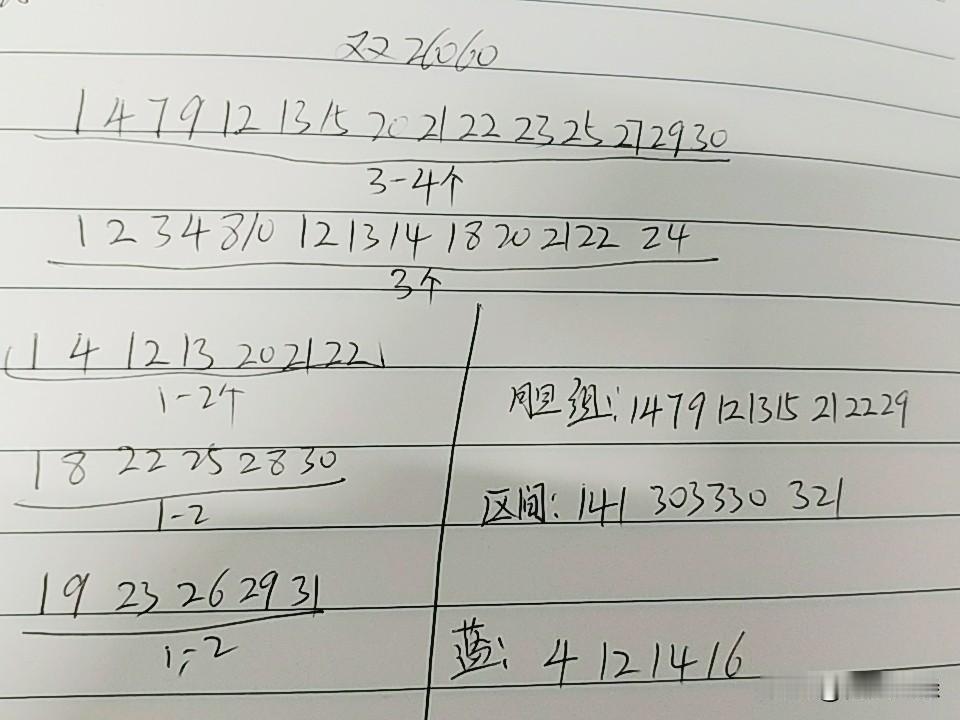 双 26060
1 4 7 9 12 13 15 20 21 22 23 25 27 29 30
3-4个
1 2 3 4 8 10 12 13 14 18 20 21 22 24
3个
1 4 12 13 20 21 22
1-2个
1 8 22 25 28 30
1-2
19 23 26 29 31
1-2
胆组: 1 4 7 9 12 13 15 21 22 29
区间: 141 303 330 321
蓝: 4 12 14 16